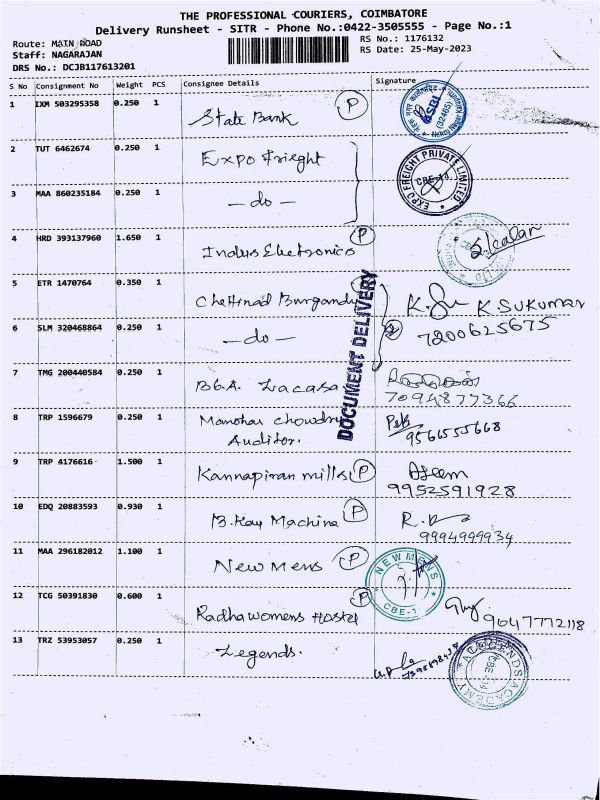 THE PROFESSIONAL COURIERS, COIMBATORE
Delivery Runsheet - SITR - Phone No.:0422-3505555 - Page No.:1
Route: MAIN ROAD
RS No.: 1176132
Staff: NAGARAJAN
RS Date: 25-May-2023
DRS No.: DCJB117613201
S No Consignment No Weight PCS Consignee Details Signature
1 IXM 503295358 0.250 1 State Bank P
SBI
2 TUT 6462674 0.250 1 Expo Frieght
EXPO FREIGHT PRIVATE LIMITED
3 MAA 860235184 0.250 1 — do —
4 HRD 393137960 1.650 1 Indus Electronics P
5 ETR 1470764 0.350 1 Chettinad Burgandy K SUKUMAR
6 SLM 320468864 0.250 1 — do — 2 7200625675
DOCUMENT DELIVERY
7 TMG 200440584 0.250 1 Zacasa
7094877366
8 TRP 1596679 0.250 1 Manohar Chowdry
Auditor. 9566555668
9 TRP 4176616 1.500 1 Kannapiran mills P
9952591928
10 EDQ 20883593 0.930 1 B.Kay Machine P
9994999934
11 MAA 296182012 1.100 1 New mens P
NEWMENS
CBE-1
12 TCG 50391830 0.600 1 Radha womens Hostel P
9047772118
13 TRZ 53953057 0.250 1 Legends.